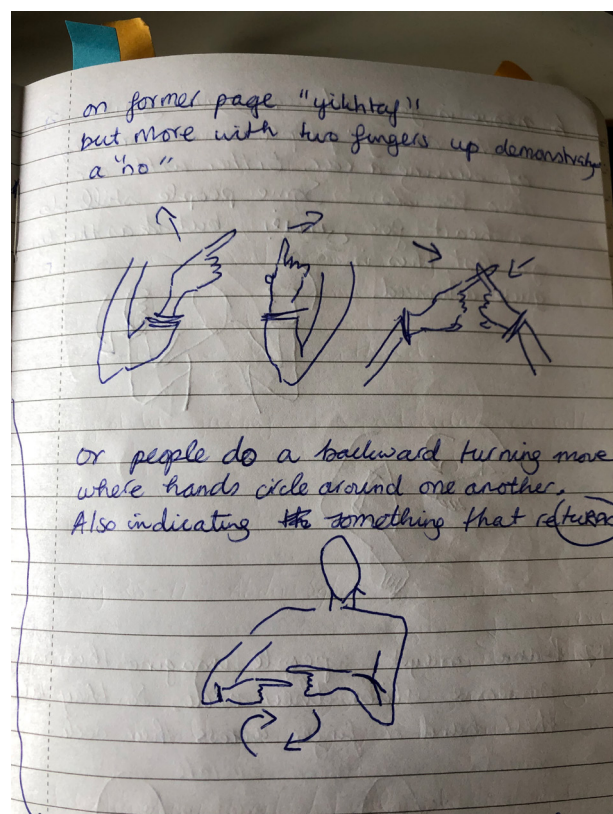 on former page "yikhtaf"
but more with two fingers up demonstrating
a "no"
or people do a backward turning move
where hands circle around one another.
Also indicating something that returns